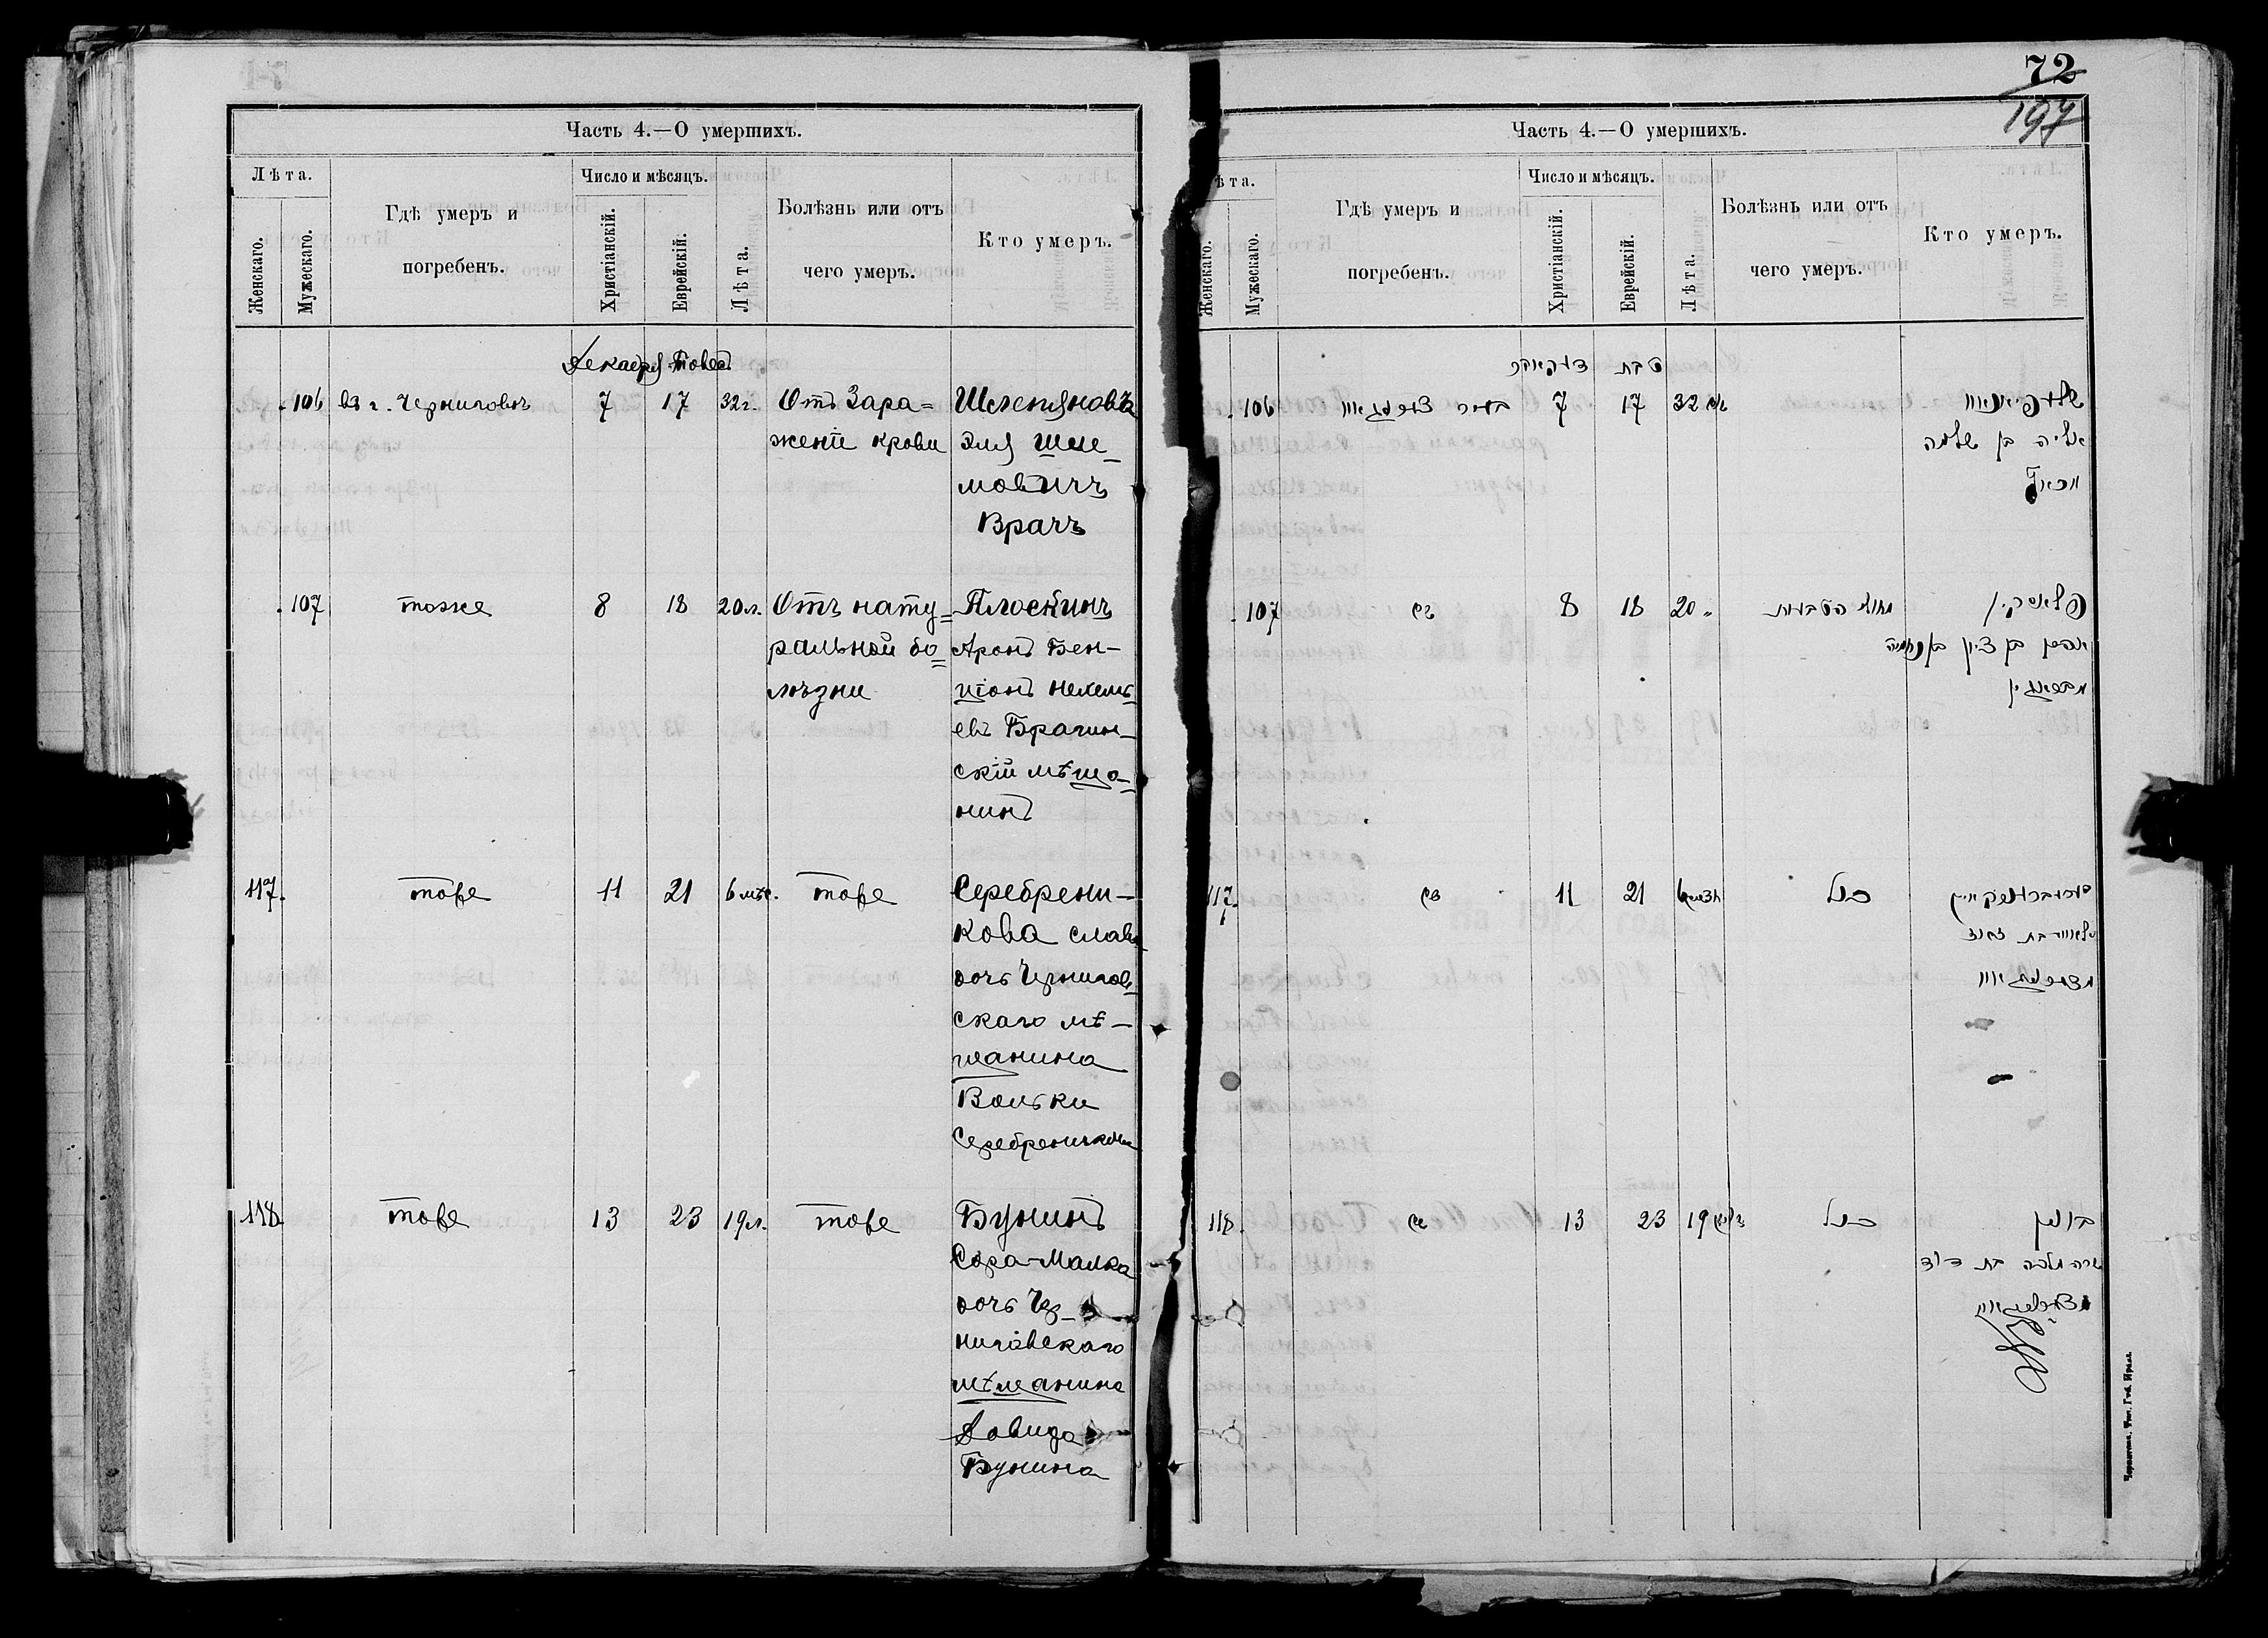 72
197
Часть 4.—О умершихъ.
Лѣта.
Женскаго.
Мужескаго.
Гдѣ умеръ и
погребенъ.
Число и мѣсяцъ.
Христіанскій.
Еврейскій.
Лѣта.
Болѣзнь или отъ
чего умеръ.
Кто умеръ.
Декабря Товес
106 въ г. Черниговѣ 7 17 32 г. Отъ Зара=
женіе крови
Шелепяновъ
Эля Шле
мовичъ
Врачъ
107 тоже 8 18 20 л. Отъ нату=
ральной бо=
лѣзни
Плоскинъ
Аронъ Бен-
ціонъ Нехемь
евъ Брагин-
скій мѣща-
нинъ
117. тоже 11 21 6 мѣс. тоже
Серебрени-
кова Слава
дочь Чернигов-
скаго мѣ-
щанина
Вольки
Серебреникова
118 тоже 13 23 19 л. тоже
Бунинъ
Сора-Малка
дочь Чер-
ниговскаго
мѣщанина
Довида
Бунина
Часть 4.—О умершихъ.
ѣта.
Женскаго.
Мужескаго.
Гдѣ умеръ и
погребенъ.
Число и мѣсяцъ.
Христіанскій.
Еврейскій.
Лѣта.
Болѣзнь или отъ
чего умеръ.
Кто умеръ.
טבת
106 7 17 32
אליה בן שלמה
107 שם 8 18 20
פלאסקין
אהרן בן ציון בן נחמיה
117. שם 11 21 6 כנ״ל
118. שם 13 23 19 כנ״ל
בונין
שרה מלכה בת דוד